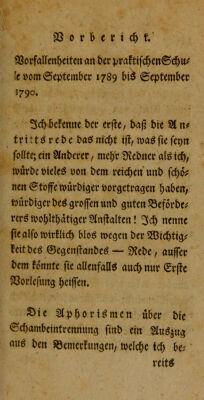 Vorbericht.
Vorfallenheiten an der praktischen Schu-
le vom September 1789 bis September
1790.
Ich bekenne der erste, daß die An-
trittsrede das nicht ist, was sie seyn
sollte; ein Anderer, mehr Redner als ich,
würde vieles von dem reichen und schö-
nen Stoffe würdiger vorgetragen haben,
würdiger des grossen und guten Beförde-
rers wohlthätiger Anstalten! Ich nenne
sie also wirklich blos wegen der Wichtig-
keit des Gegenstandes — Rede, ausser
dem könnte sie allenfalls auch nur Erste
Vorlesung heissen.
Die Aphorismen über die
Schambeintrennung sind ein Auszug
aus den Bemerkungen, welche ich be-
reits